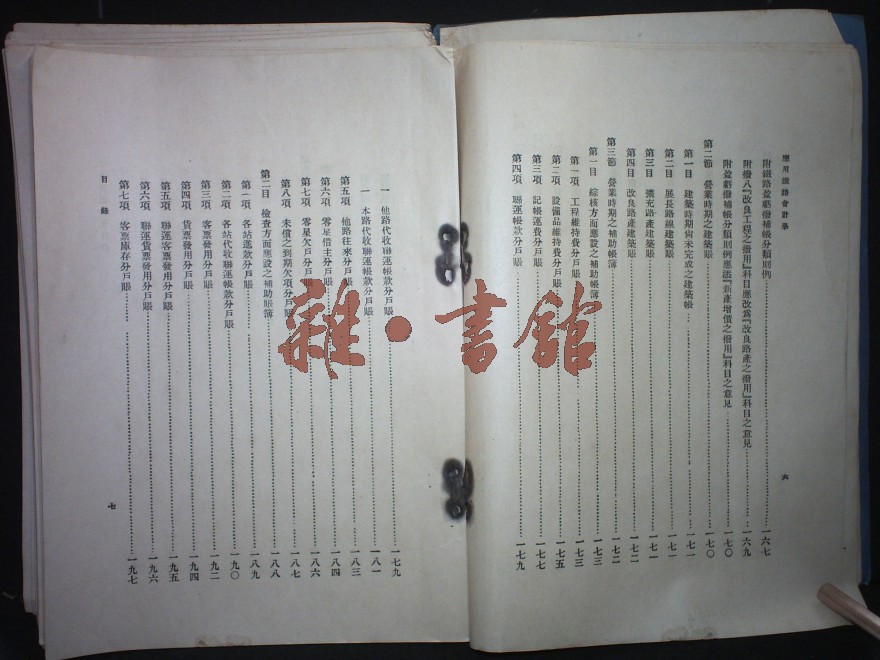 應用鐵路會計學
附鐵路盈虧撥補帳分類則例……一六七
附撥八『改良工程之撥用』科目應改爲『改良路產之撥用』科目之意見……一六九
附盈虧撥補帳分類則例應添『新產增價之撥用』科目之意見……一七〇
第二節 營業時期之建築賬……一七〇
第一目 建築時期尙未完成之建築帳……一七一
第二目 展長路線建築賬……一七一
第三目 擴充路產建築賬……一七一
第四目 改良路產建築賬……一七二
第三節 營業時期之補助帳簿……一七二
第一目 綜核方面應設之補助帳簿……一七三
第一項 工程維持費分戶賬……一七三
第二項 設備品維持費分戶賬……一七五
第三項 記帳運費分戶賬……一七七
第四項 聯運帳款分戶賬……一七九
六
一 他路代收聯運帳款分戶賬……一七九
一 本路代收聯運帳款分戶賬……一八一
第五項 他路往來分戶賬……一八三
第六項 零星借主分戶賬……一八四
第七項 零星欠戶分戶賬……一八六
第八項 未償之到期欠項分戶賬……一八七
第二目 檢查方面應設之補助賬簿……一八八
第一項 各站進款分戶賬……一八九
第二項 各站代收聯運帳款分戶賬……一九〇
第三項 客票發用分戶賬……一九二
第四項 貨票發用分戶賬……一九四
第五項 聯運客票發用分戶賬……一九五
第六項 聯運貨票發用分戶賬……一九六
第七項 客票庫存分戶賬……一九七
目錄
七
雜·書館